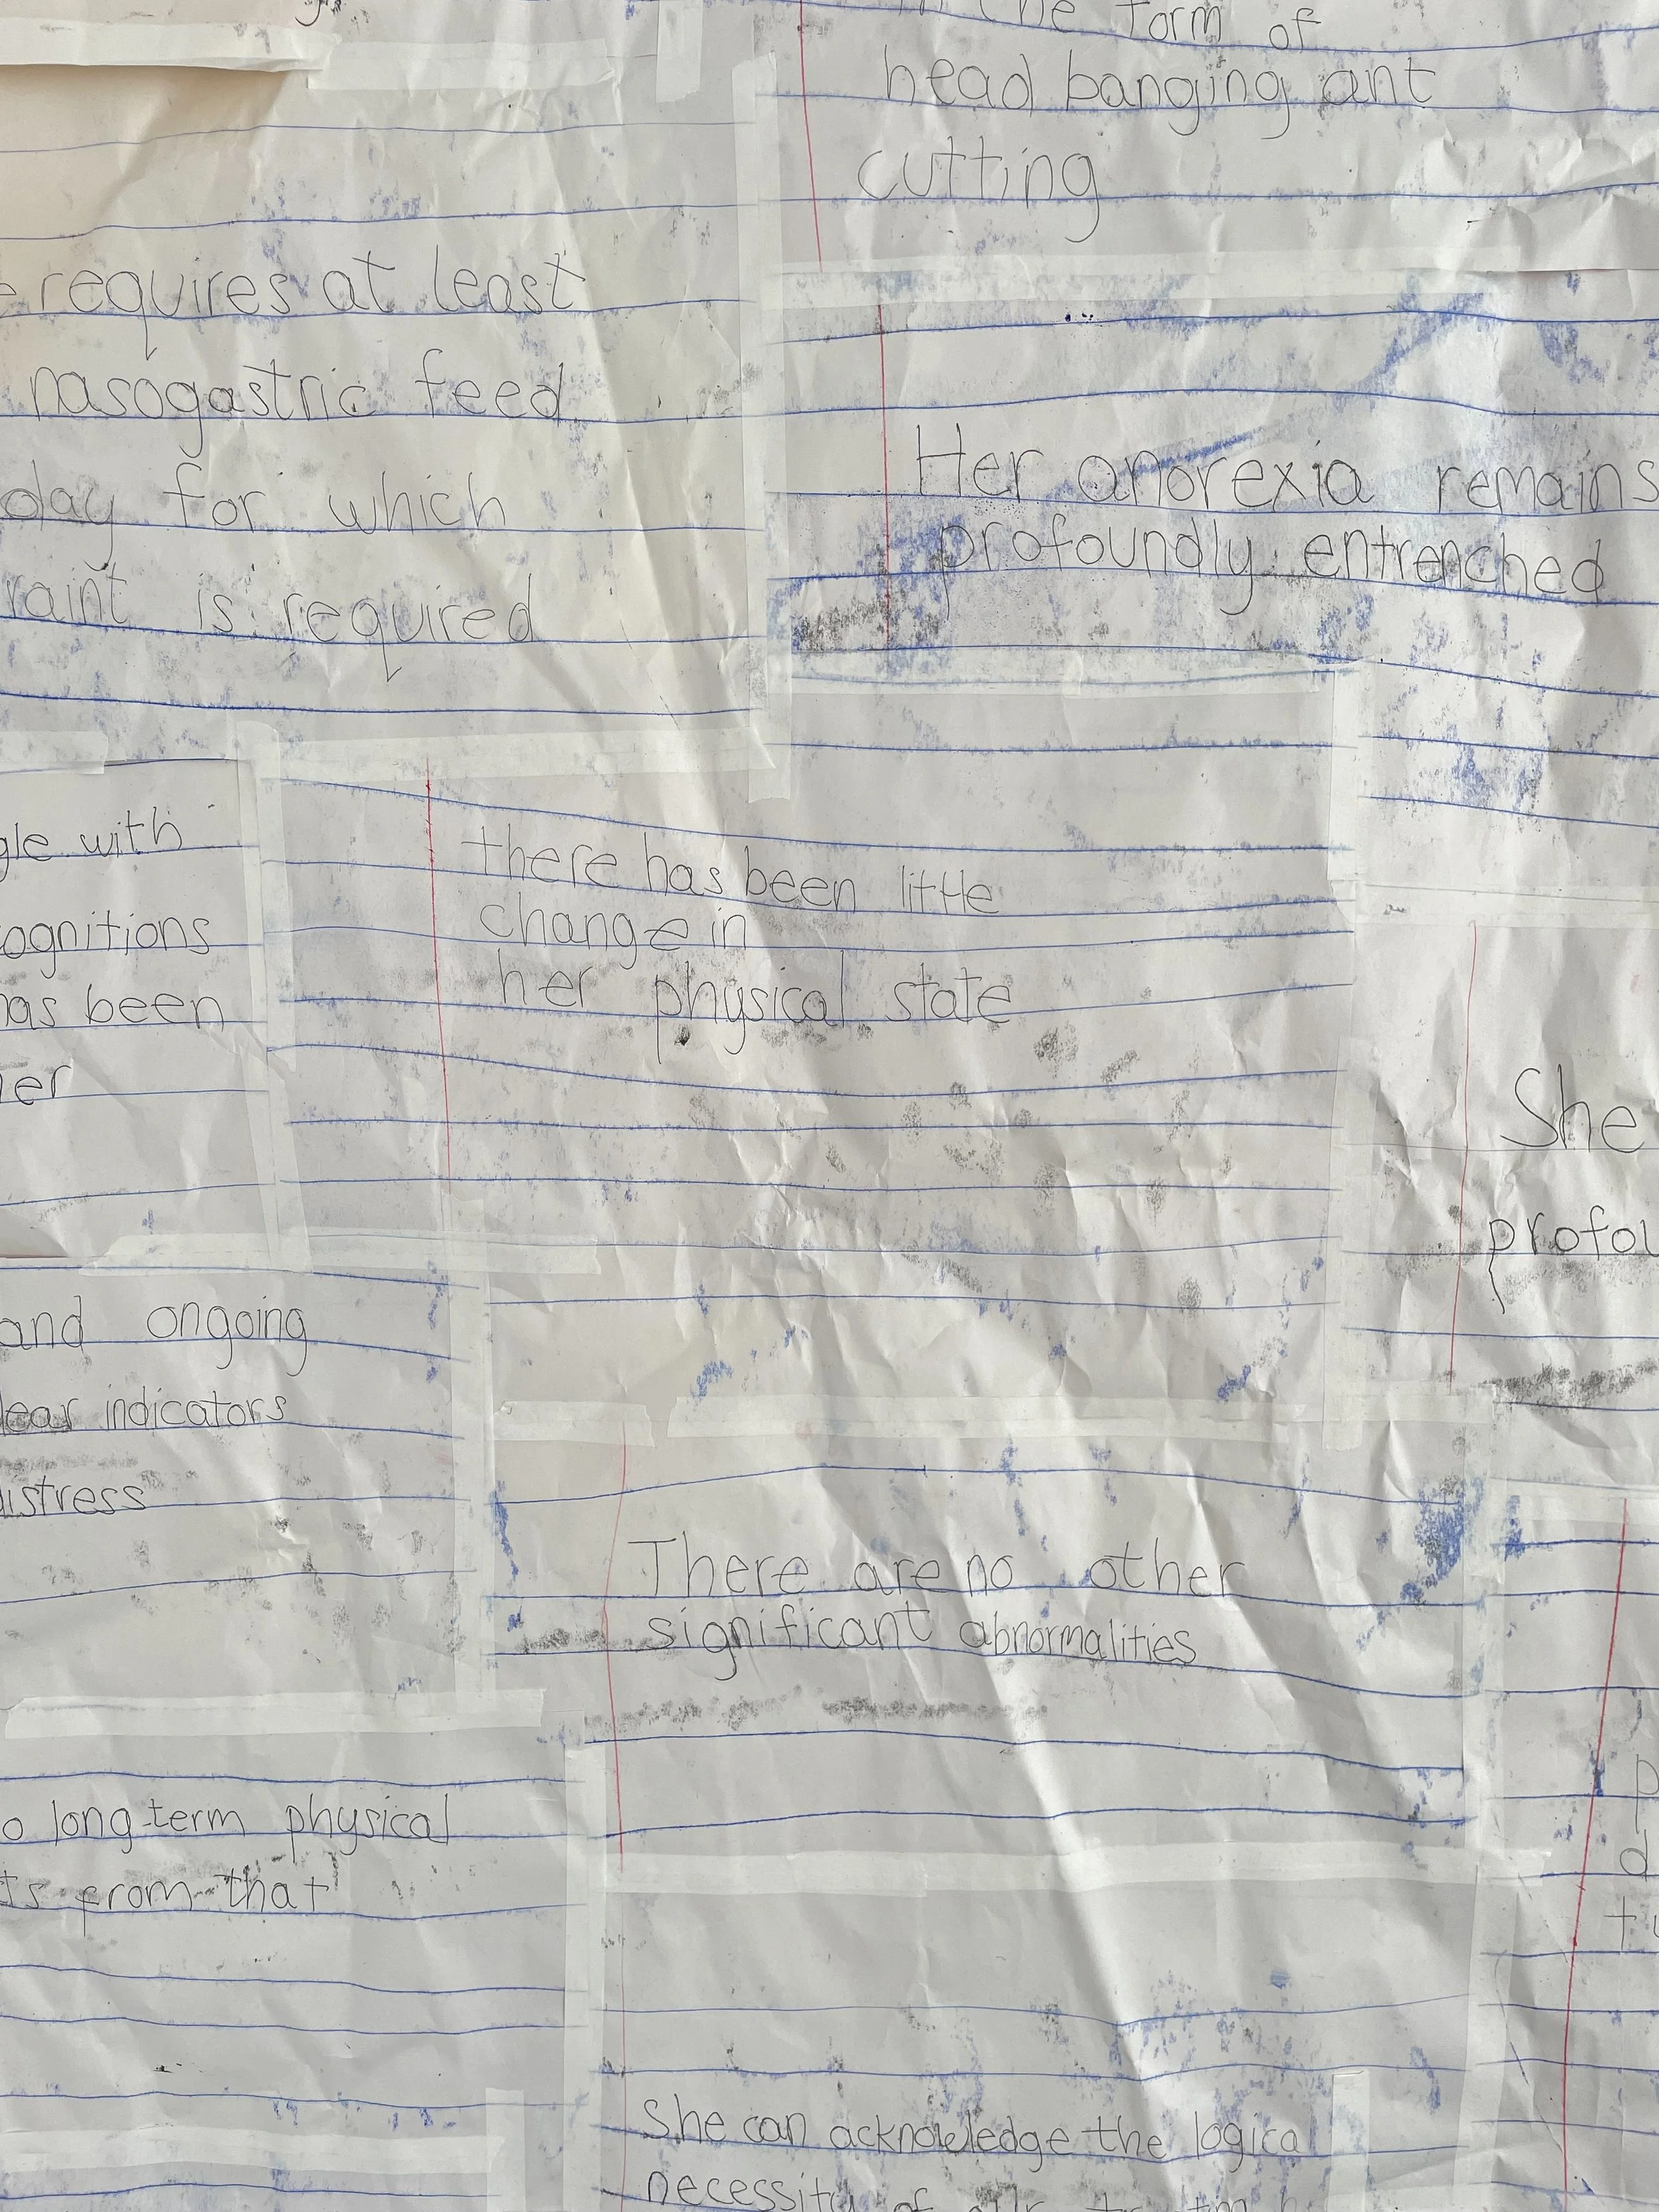 in the form of
head banging ant
cutting
requires at least
nasogastric feed
day for which
raint is required
Her anorexia remains
profoundly entrenched
gle with
ognitions
has been
er
there has been little
change in
her physical state
She
profou
and ongoing
lear indicators
istress
There are no other
significant abnormalities
o long-term physical
ts from that
p
d
tu
She can acknowledge the logical
necessity of